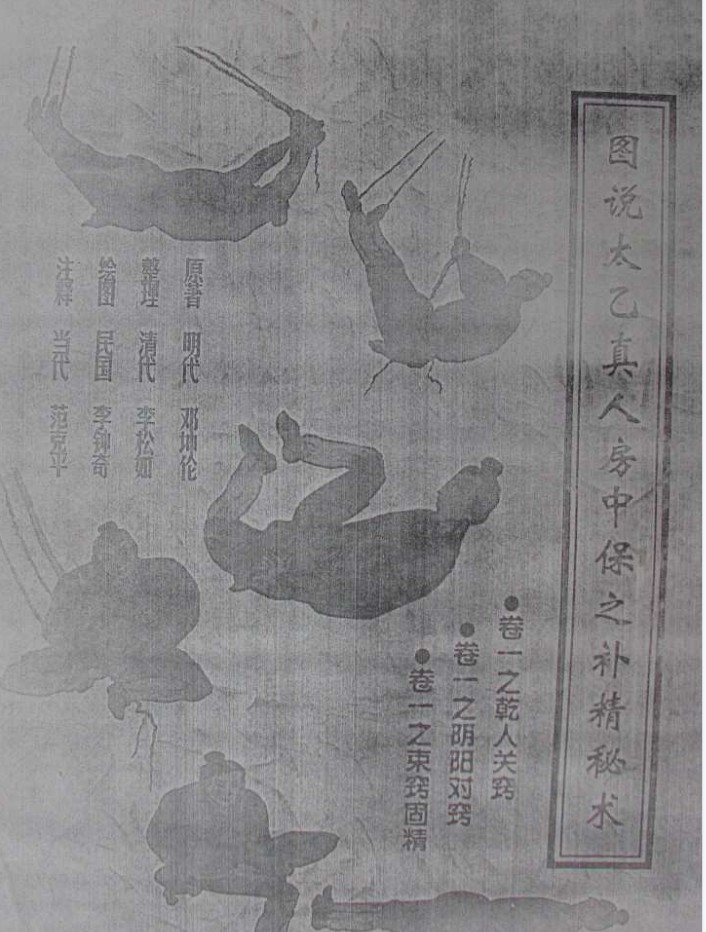 图说太乙真人房中保之补精秘术
●卷一之乾人关窍
●卷一之阴阳对窍
●卷一之束窍固精
原著 明代 邓坤伦
整理 清代 李松如
绘图 民国 李钟奇
注释 当代 范克平